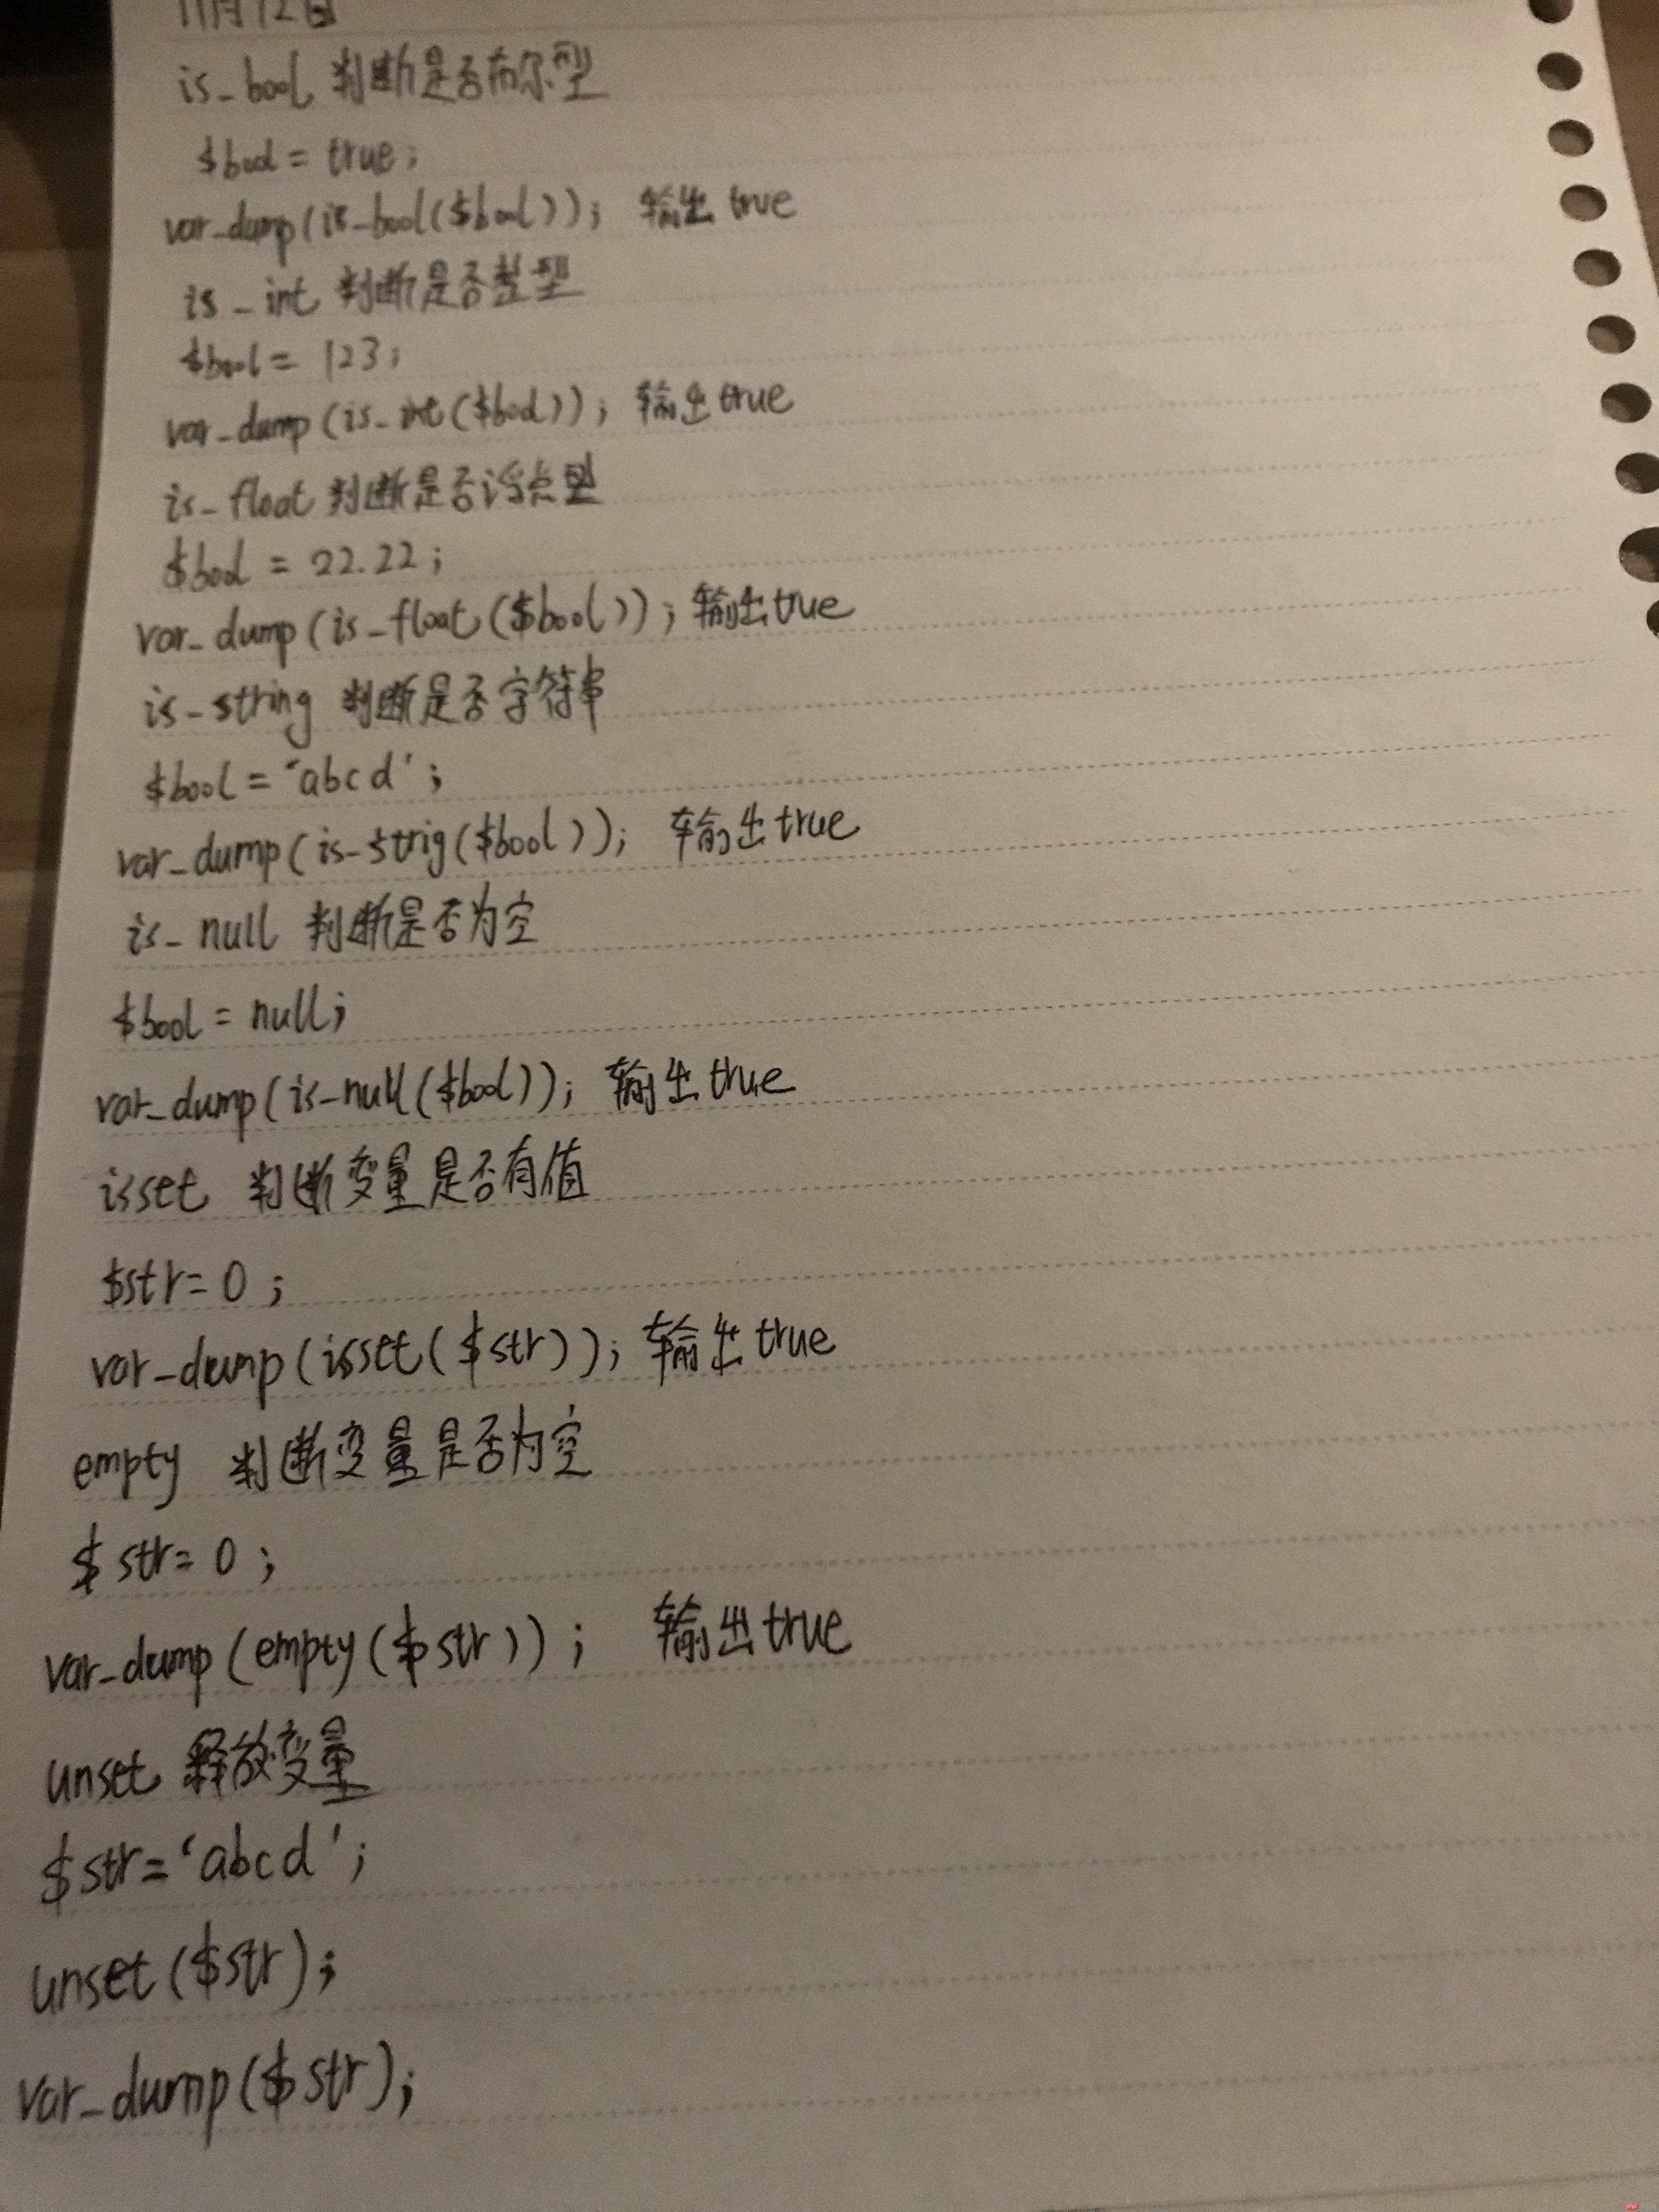 11月12日
is_bool 判断是否布尔型
$bool = true;
var_dump(is_bool($bool)); 输出 true
is_int 判断是否整型
$bool = 123;
var_dump(is_int($bool)); 输出true
is_float 判断是否浮点型
$bool = 22.22;
var_dump(is_float($bool)); 输出true
is_string 判断是否字符串
$bool = 'abcd';
var_dump(is_strig($bool)); 输出true
is_null 判断是否为空
$bool = null;
var_dump(is_null($bool)); 输出true
isset 判断变量是否有值
$str=0;
var_dump(isset($str)); 输出true
empty 判断变量是否为空
$str=0;
var_dump(empty($str)); 输出true
unset 释放变量
$str='abcd';
unset($str);
var_dump($str);